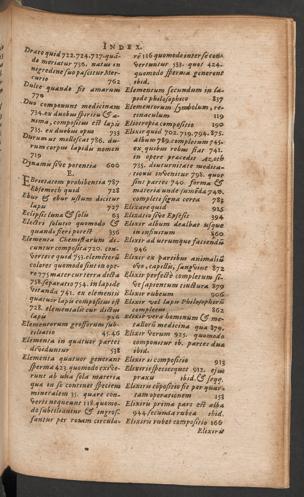 INDEX.
Draco quid 722.724.727. quã-
do moriatur 736. natus in
nigredine suo pascitur Mer-
curio 762
Dulce quando fit amarum
770
Duo componunt medicinam
734. ex duobus spiritu & a-
nima, compositus est lapis
735. ex duobus opus 733
Durum ut mollescat 786. du-
rum corpus lapidis nomen
719
Dynamis sive potentia 600
E.
Ebrietatem prohibentia 787
Ebsemech quid 728
Ebur & ebur ustum dicitur
lapis 727
Eclipsis lunæ & solis 63
Electri solutio quomodo &
quando fieri potest 356
Elementa Chemistarum di-
cuntur composita 720. con-
vertere quid 753. elemẽtorũ
colores quomodo sint in ope-
re 775 mater eorum terra dicta
758. separatio 754. in lapide
servanda 741. ex elementis
quatuor lapis compositus est
728. elementalis cur dictus
lapis 726
Elementorum grossorum sub-
tiliatio 45.46
Elementa in quatuor partes
dividuntur 538
Elementa quatuor generant
sperma 423. quomodo exive-
runt ab una sola materia
qua in se continet speciem
mineralem 35. quare con-
verti nequeunt 118. quomo-
do subtiliantur & ingros-
santur per rotam circulo-
rũ 116 quomodo inter se con-
vertuntur 533. quot 424.
quomodo sperma generent
ibid.
Elementum secundum in la-
pide philosophico 837
Elementorum symbolum, re-
tinaculum 119
Eleitropia compositio 290
Elixir quid 702.719.794.875.
album 789. complerum 745.
ex quibus rebus fiat 741.
in opere præcedit
735. diuturnitate medita-
tionis invenitur 798. quot
sint partes 740. forma &
materia unde sumẽda 740.
completi signa certa 788
Elixare quid 925
Elixatio sive Epsesis 394
Elixir album dealbas usque
in infinitum 360
Elixir ad utrumque faciendũ
946
Elixir ex partibus animaliũ
ovo, capillis, sanguine 872
Elixir perfectè completum si-
ve sapientum tinctura 879
Elixir rubeum 906
Elixir vel lapis Philosophorũ
completus 862
Elixir vera hominum & me-
tallorũ medicina qua 879.
Elixir verum 925. quomodo
componitur ib. partes dua
ibid.
Elixiris compositio 913
Elixiris species quot 912. ejus
praxis ibid. & seqq.
Elixiris cõpositio fit per quar-
tam operationem 158
Elixiris prima pars est alba
944. secunda rubea ibid.
Elixiris rubei compositio 166
Elixiris